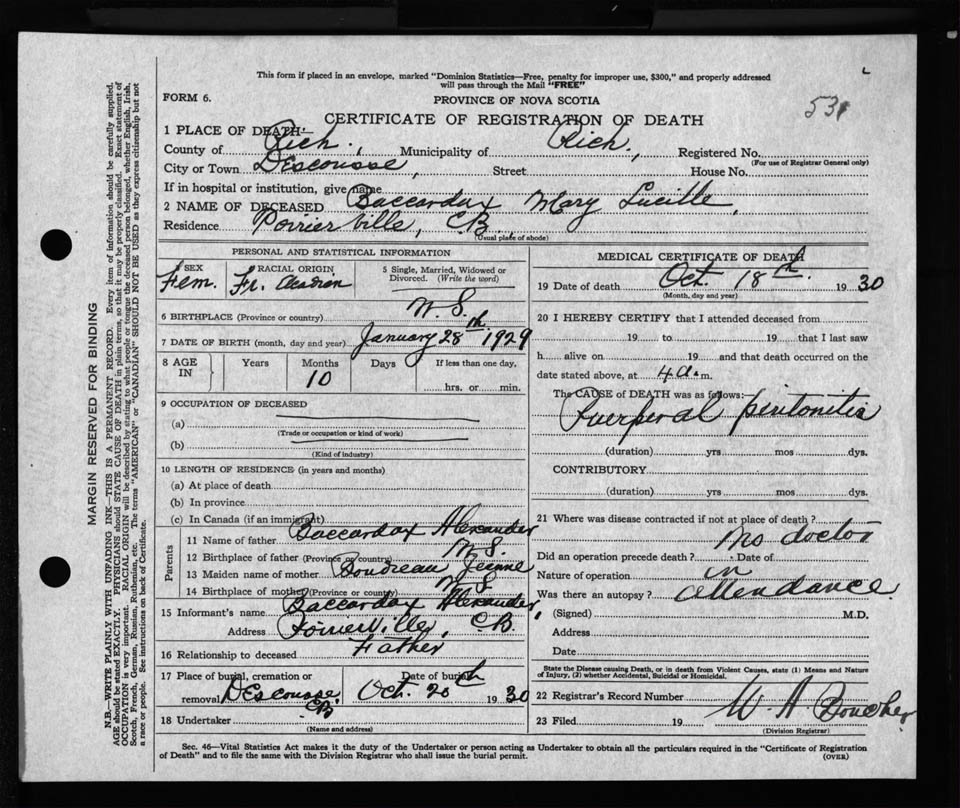 This form if placed in an envelope, marked "Dominion Statistics—Free, penalty for improper use, $300," and properly addressed
will pass through the Mail "FREE"
FORM 6.
PROVINCE OF NOVA SCOTIA
531
CERTIFICATE OF REGISTRATION OF DEATH
1 PLACE OF DEATH—
County of Rich., Municipality of Rich., Registered No.
(For use of Registrar General only)
City or Town DEscousse, Street House No.
If in hospital or institution, give name
2 NAME OF DECEASED Baccardax Mary Lucille,
Residence Poirierville, C.B.
(Usual place of abode)
PERSONAL AND STATISTICAL INFORMATION
SEX Fem.
RACIAL ORIGIN Fr. Acadian
5 Single, Married, Widowed or Divorced. (Write the word)
6 BIRTHPLACE (Province or country) N.S.
7 DATE OF BIRTH (month, day and year) January 28th 1929
8 AGE IN Years Months 10 Days If less than one day, hrs. or min.
9 OCCUPATION OF DECEASED
(a)
(Trade or occupation or kind of work)
(b)
(Kind of industry)
10 LENGTH OF RESIDENCE (in years and months)
(a) At place of death
(b) In province
(c) In Canada (if an immigrant)
Parents
11 Name of father Baccardax Alexander
12 Birthplace of father (Province or country) N.S.
13 Maiden name of mother Boudreau Jeanne
14 Birthplace of mother (Province or country) N.S.
15 Informant's name Baccardax Alexander,
Address Poirierville, C.B.
16 Relationship to deceased Father
17 Place of burial, cremation or removal DEscousse, C.B. Date of burial Oct. 20th 1930
18 Undertaker
(Name and address)
MEDICAL CERTIFICATE OF DEATH
19 Date of death Oct. 18th 1930
(Month, day and year)
20 I HEREBY CERTIFY that I attended deceased from
19 to 19 that I last saw
h alive on 19 and that death occurred on
date stated above, at 4 a.m.
The CAUSE of DEATH was as follows:
Puerperal peritonitis
(duration) yrs mos dys.
CONTRIBUTORY
(duration) yrs mos dys.
21 Where was disease contracted if not at place of death?
No doctor
Did an operation precede death? Date of
Nature of operation in
Was there an autopsy? attendance.
(Signed) M.D.
Address
Date
State the Disease causing Death, or in death from Violent Causes, state (1) Means and Nature
of Injury, (2) whether Accidental, Suicidal or Homicidal.
22 Registrar's Record Number
23 Filed 19 W. A. Boucher
(Division Registrar)
Sec. 46—Vital Statistics Act makes it the duty of the Undertaker or person acting as Undertaker to obtain all the particulars required in the "Certificate of Registration
of Death" and to file the same with the Division Registrar who shall issue the burial permit.
(OVER)
MARGIN RESERVED FOR BINDING
N.B.—WRITE PLAINLY WITH UNFADING INK—THIS IS A PERMANENT RECORD. Every item of information should be carefully supplied.
AGE should be stated EXACTLY. PHYSICIANS should STATE CAUSE OF DEATH in plain terms, so that it may be properly classified. Exact statement of
OCCUPATION is very important. RACIAL ORIGIN will be described by stating to what people or tongue the deceased person belonged, whether English, Irish,
Scotch, French, German, Russian, Ruthenian, etc. The terms "AMERICAN" or "CANADIAN" SHOULD NOT BE USED as they express citizenship but not
a race or people. See instructions on back of Certificate.